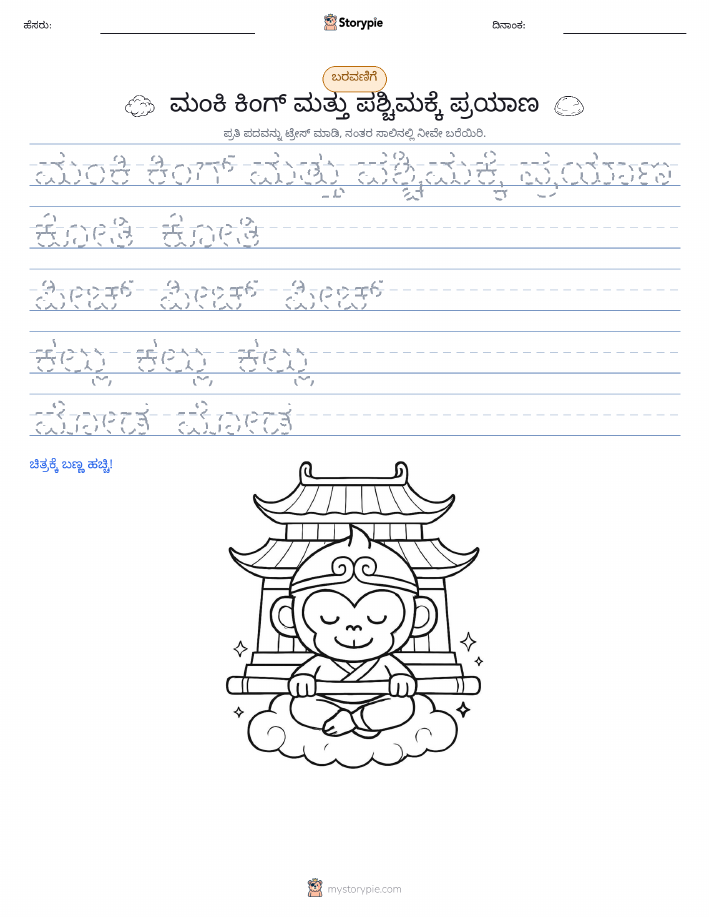 ಹೆಸರು:
Storypie
ದಿನಾಂಕ:
ಬರವಣಿಗೆ
ಮಂಕಿ ಕಿಂಗ್ ಮತ್ತು ಪಶ್ಚಿಮಕ್ಕೆ ಪ್ರಯಾಣ
ಪ್ರತಿ ಪದವನ್ನು ಟ್ರೇಸ್ ಮಾಡಿ, ನಂತರ ಸಾಲಿನಲ್ಲಿ ನೀವೇ ಬರೆಯಿರಿ.
ಮಂಕಿ ಕಿಂಗ್ ಮತ್ತು ಪಶ್ಚಿಮಕ್ಕೆ ಪ್ರಯಾಣ
ಕೋತಿ ಕೋತಿ
ಪೀಚ್ ಪೀಚ್ ಪೀಚ್
ಕಲ್ಲು ಕಲ್ಲು ಕಲ್ಲು
ಮೋಡ ಮೋಡ
ಚಿತ್ರಕ್ಕೆ ಬಣ್ಣ ಹಚ್ಚಿ!
mystorypie.com